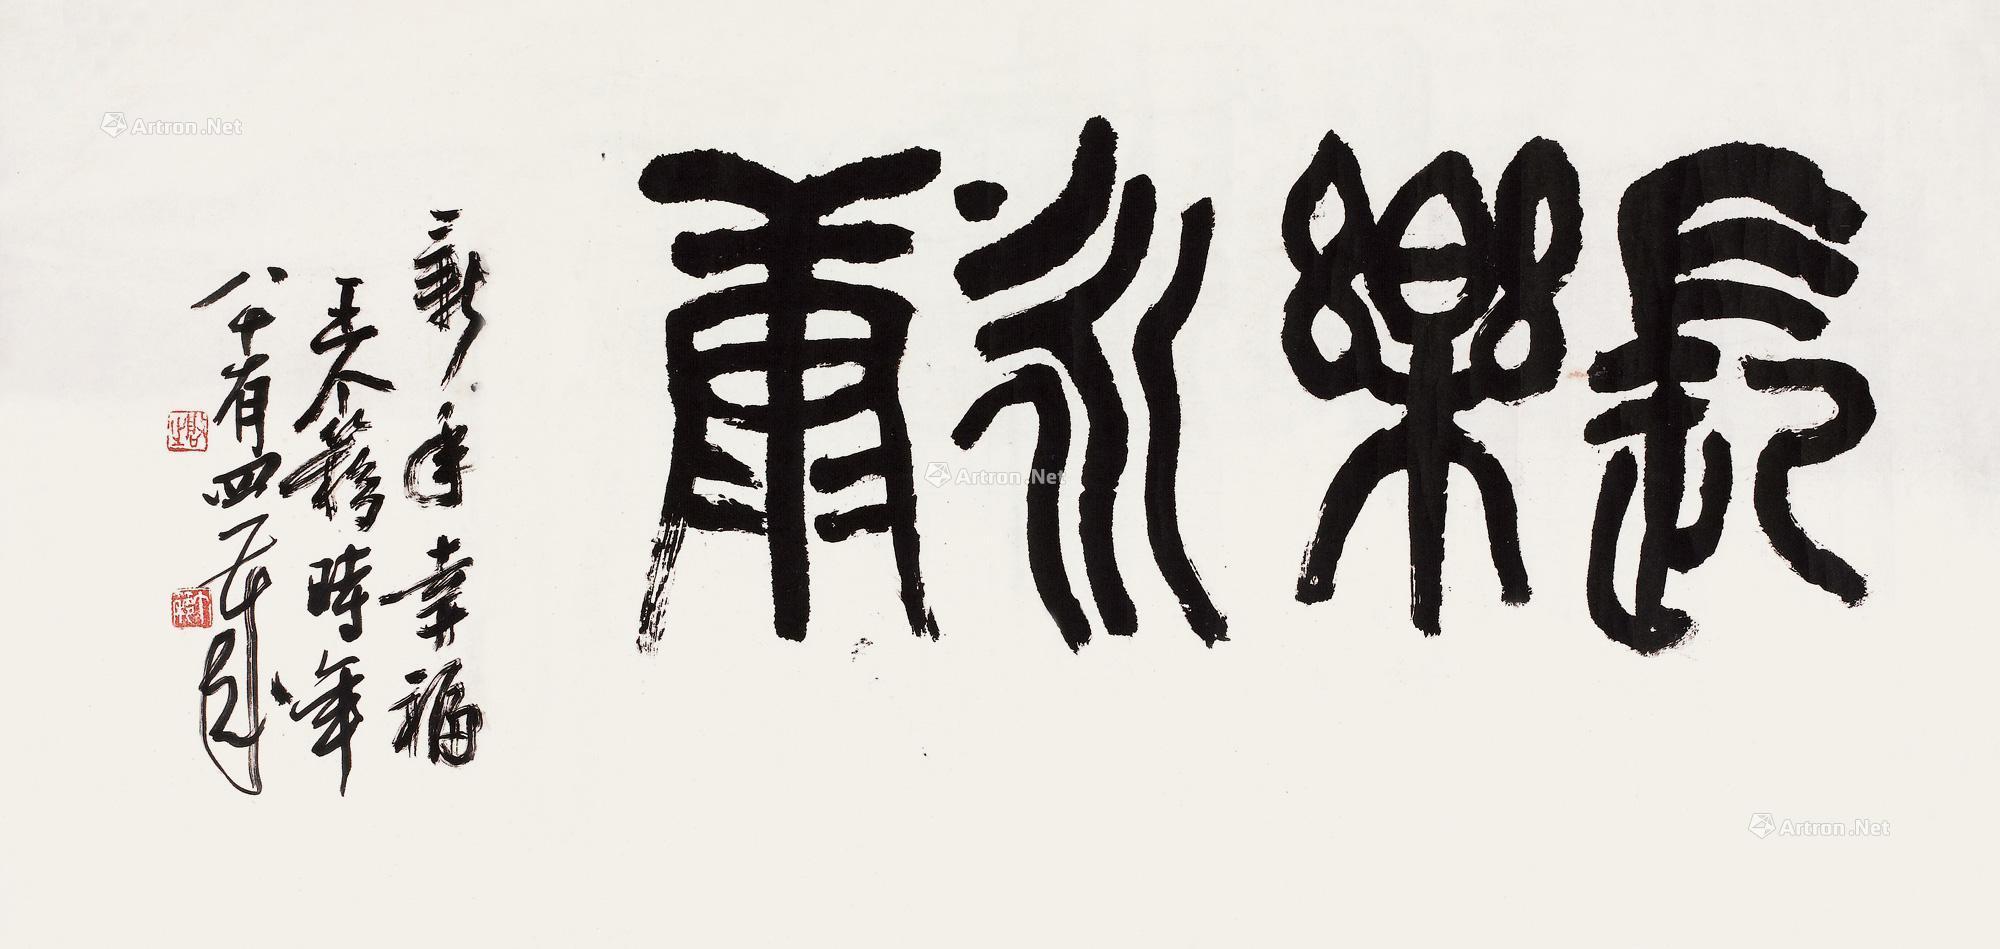 長樂永康
新年幸福
王个簃時年
八十有四
Artron.Net
Artron.Net
Artron.Net